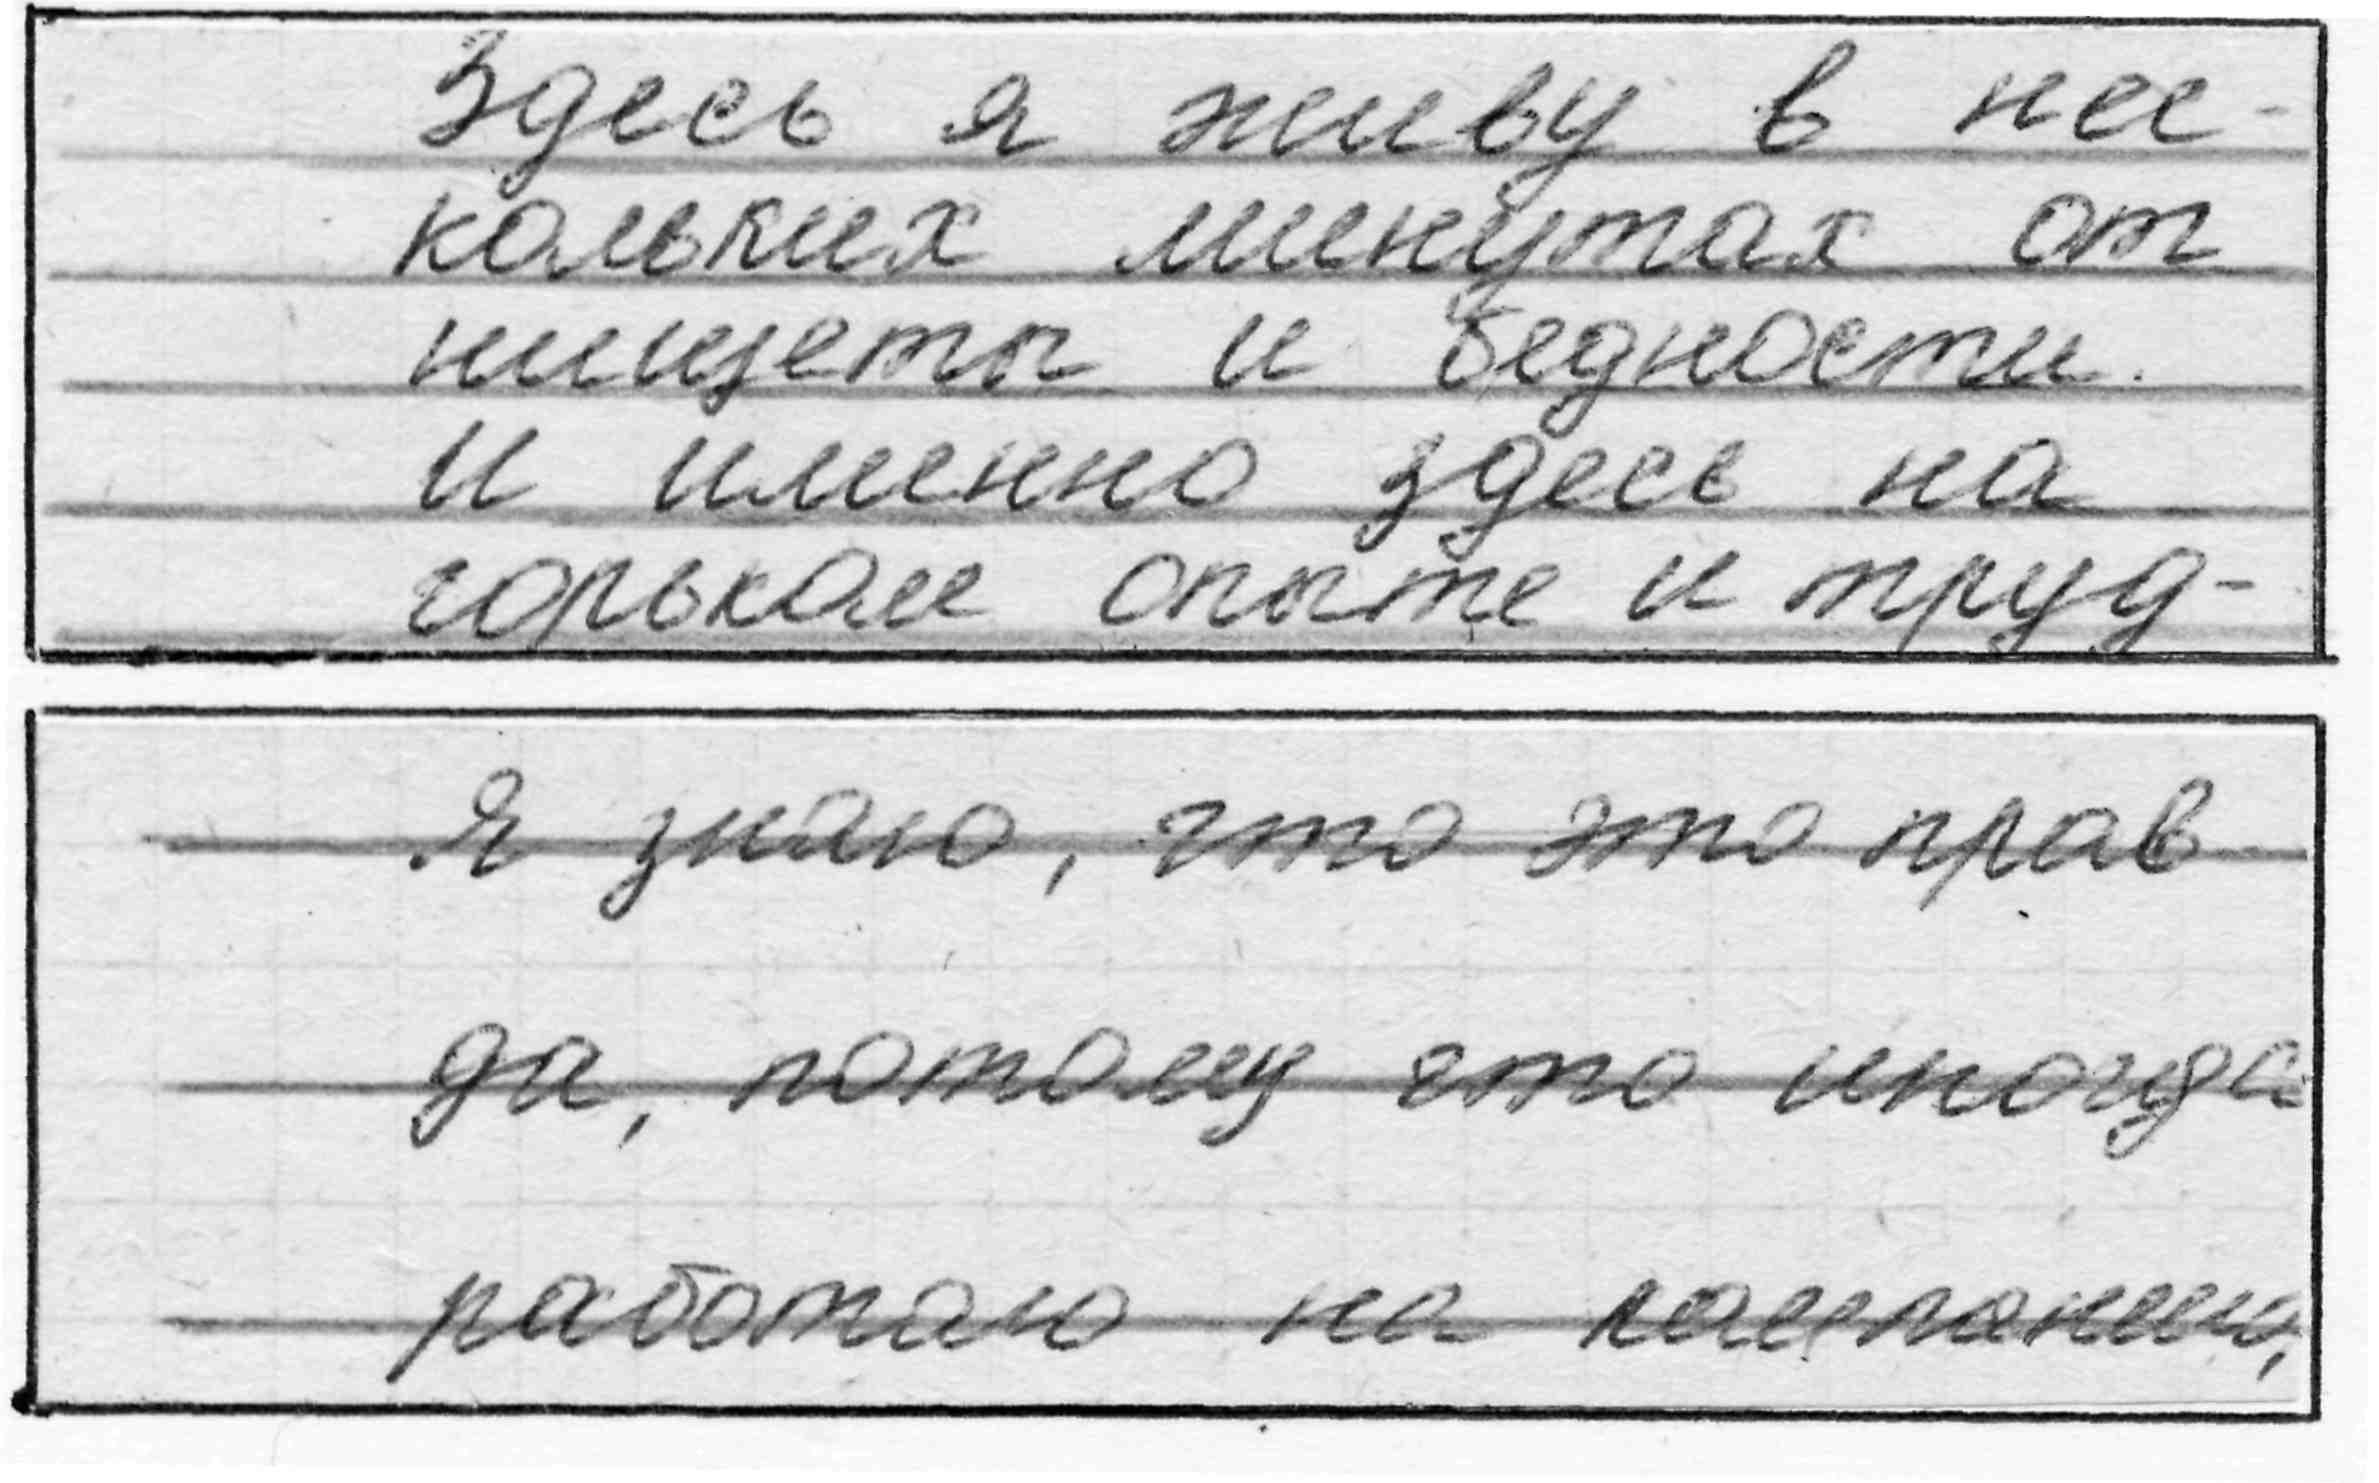 Здесь я живу в нес-
кольких минутах от
нищеты и бедности.
И именно здесь на
горьком опыте и труд-
Я знаю, что это прав
да, потому что иногда
работаю на компанию,